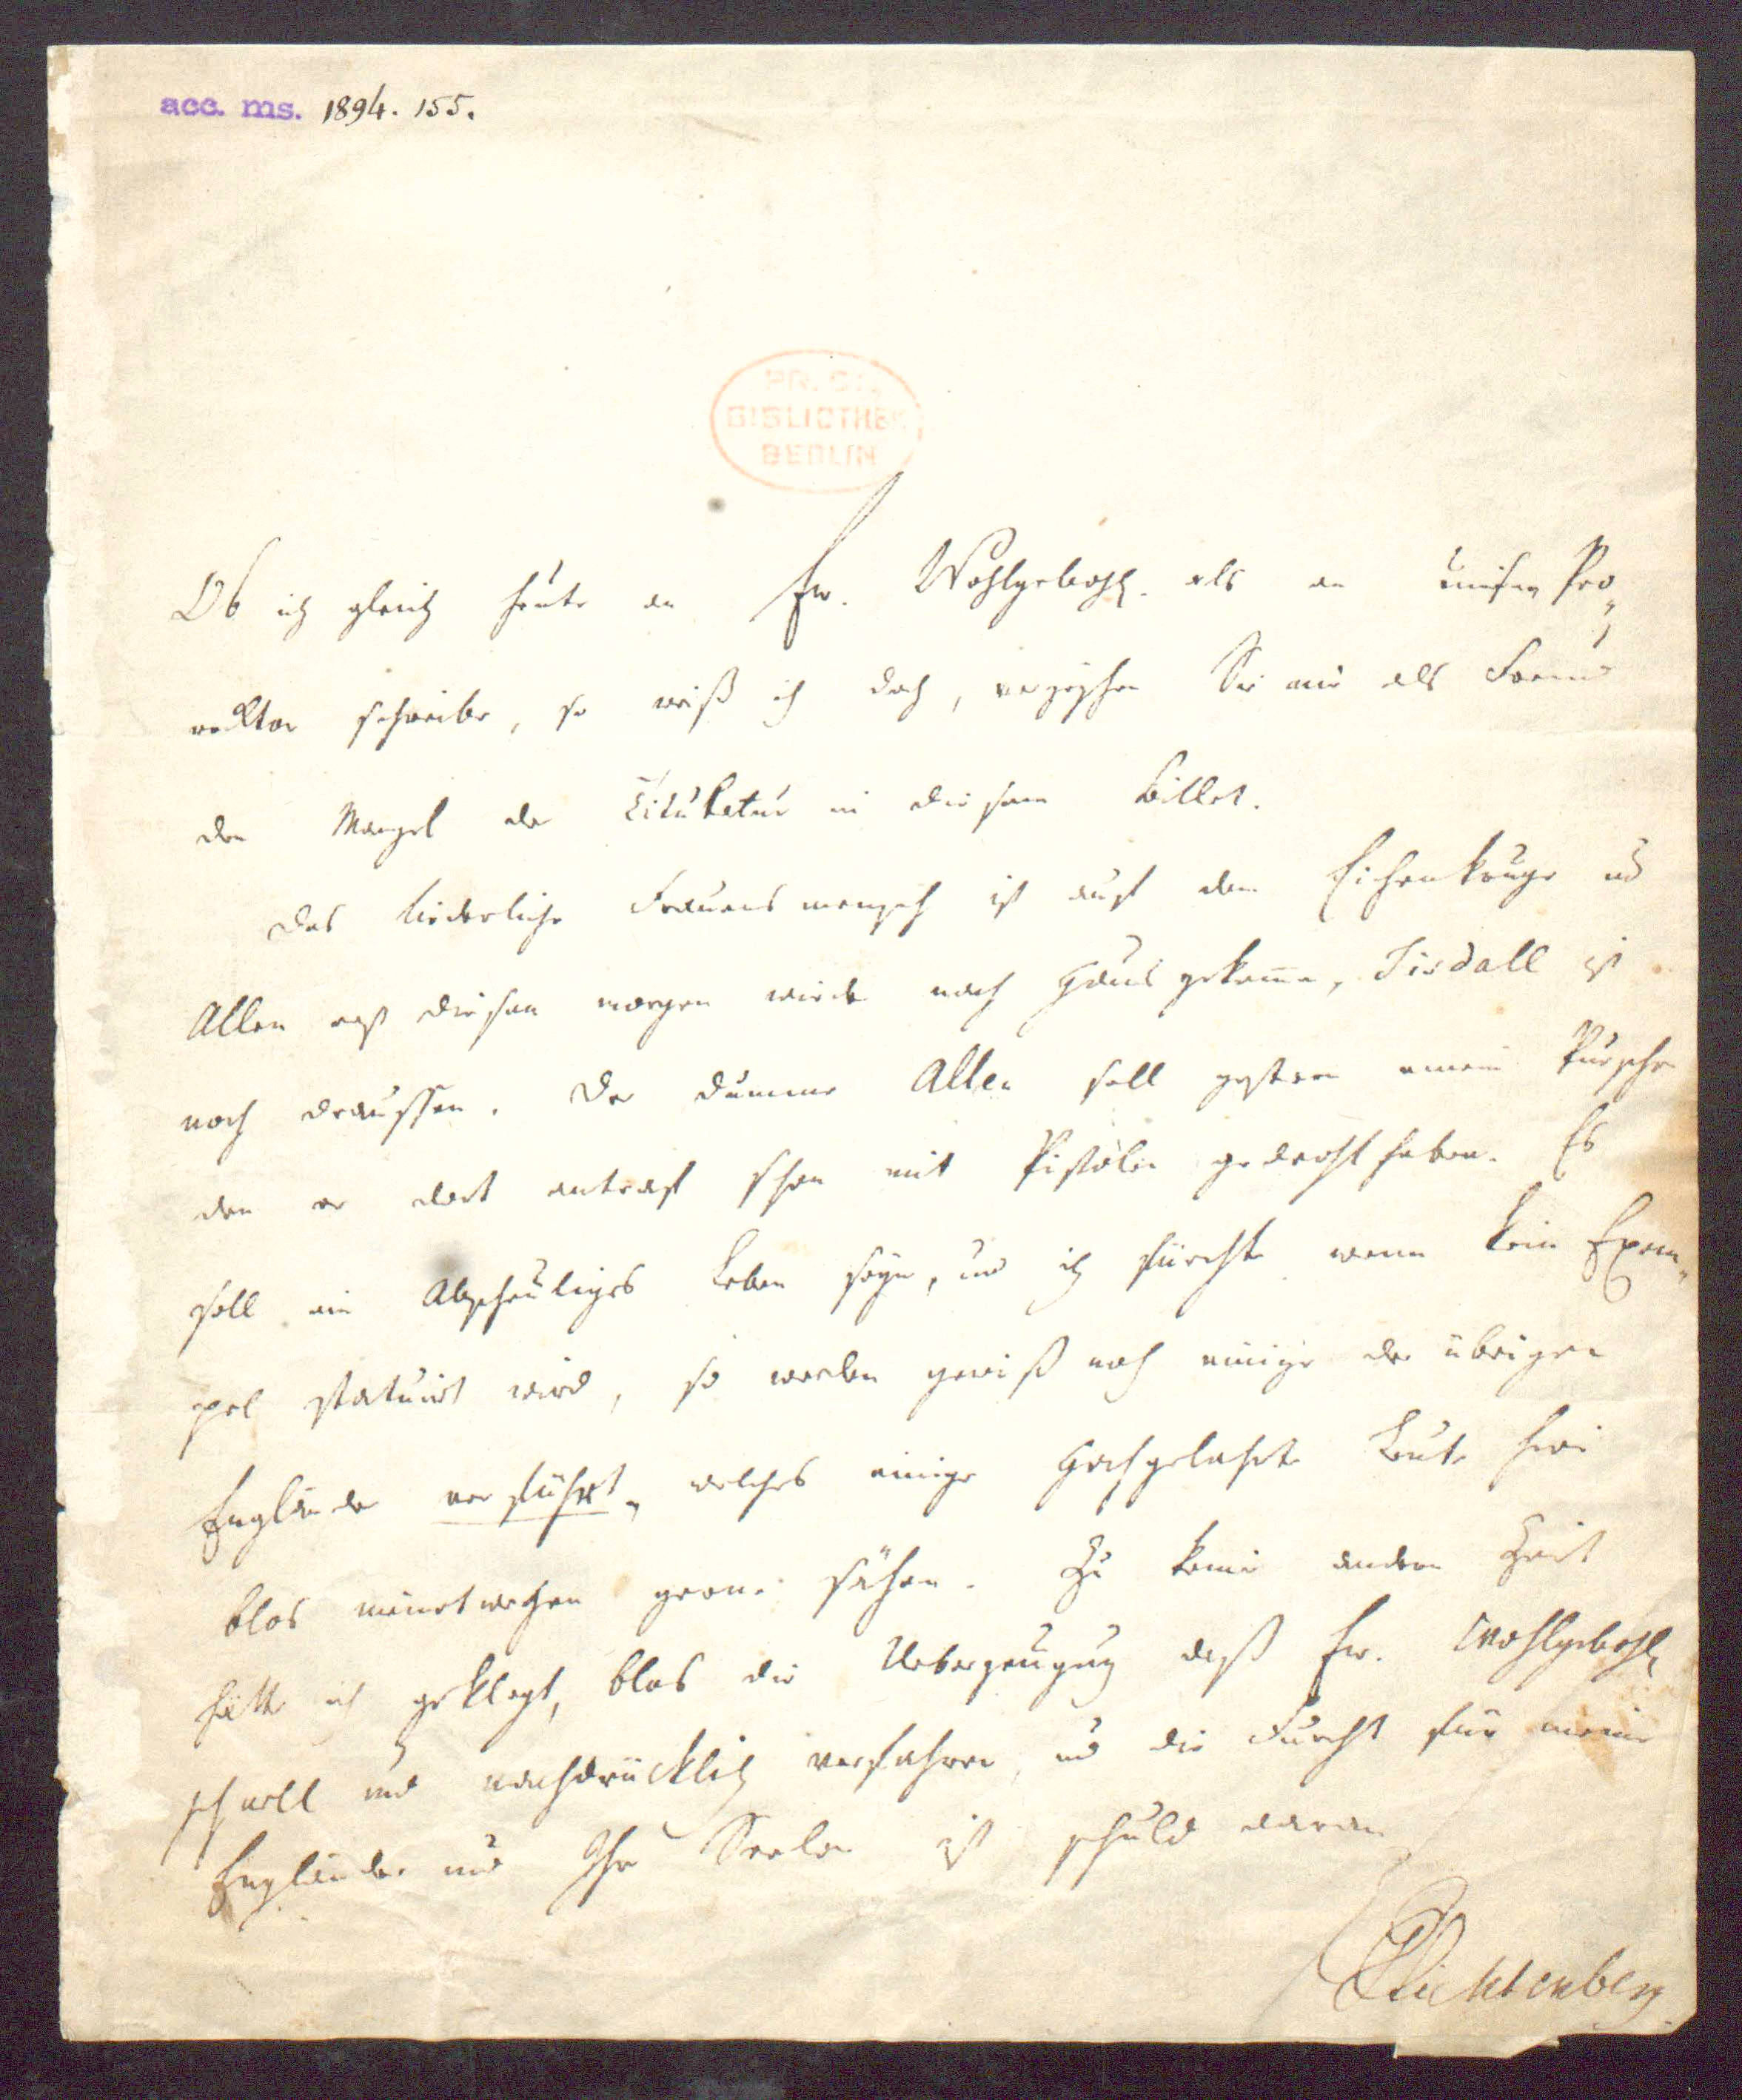 acc. ms. 1894. 155.
PR. ST.
BIBLIOTHEK
BERLIN
Ob ich gleich heute an Ew. Wohlgebohr. als an unsern Pro„
recktor schreibe, so weiß ich doch, verzeyhen Sie mir als Freund
den Mangel der Titulatur in diesem Billet.
Das liederliche Frauensmensch ist auf dem Eichenkruge und
Allen erst diesen morgen wieder nach Hauß gekomen, Tisdall ist
noch draussen. Der dumme Allen soll gestern einem Purschen
den er dort antraf schon mit Pistolen gedroht haben. Es
soll ein Abscheuliges Leben seyn, und ich fürchte wenn kein Exem„
pel statuirt wird, so werden gewiß noch einige der übrigen
Engländer verführt, welches einige Hochgelahrte Leute hier
blos meinetwegen gerne sähen. Zu keiner andern Zeit
hätte ich geklagt, blos die Ueberzeugung daß Ew. Wohlgebohr
schnell und nachdrücklich verfahren, und die Furcht für meine
Engländer und Ihre Seelen ist schuld daran
GCLichtenberg